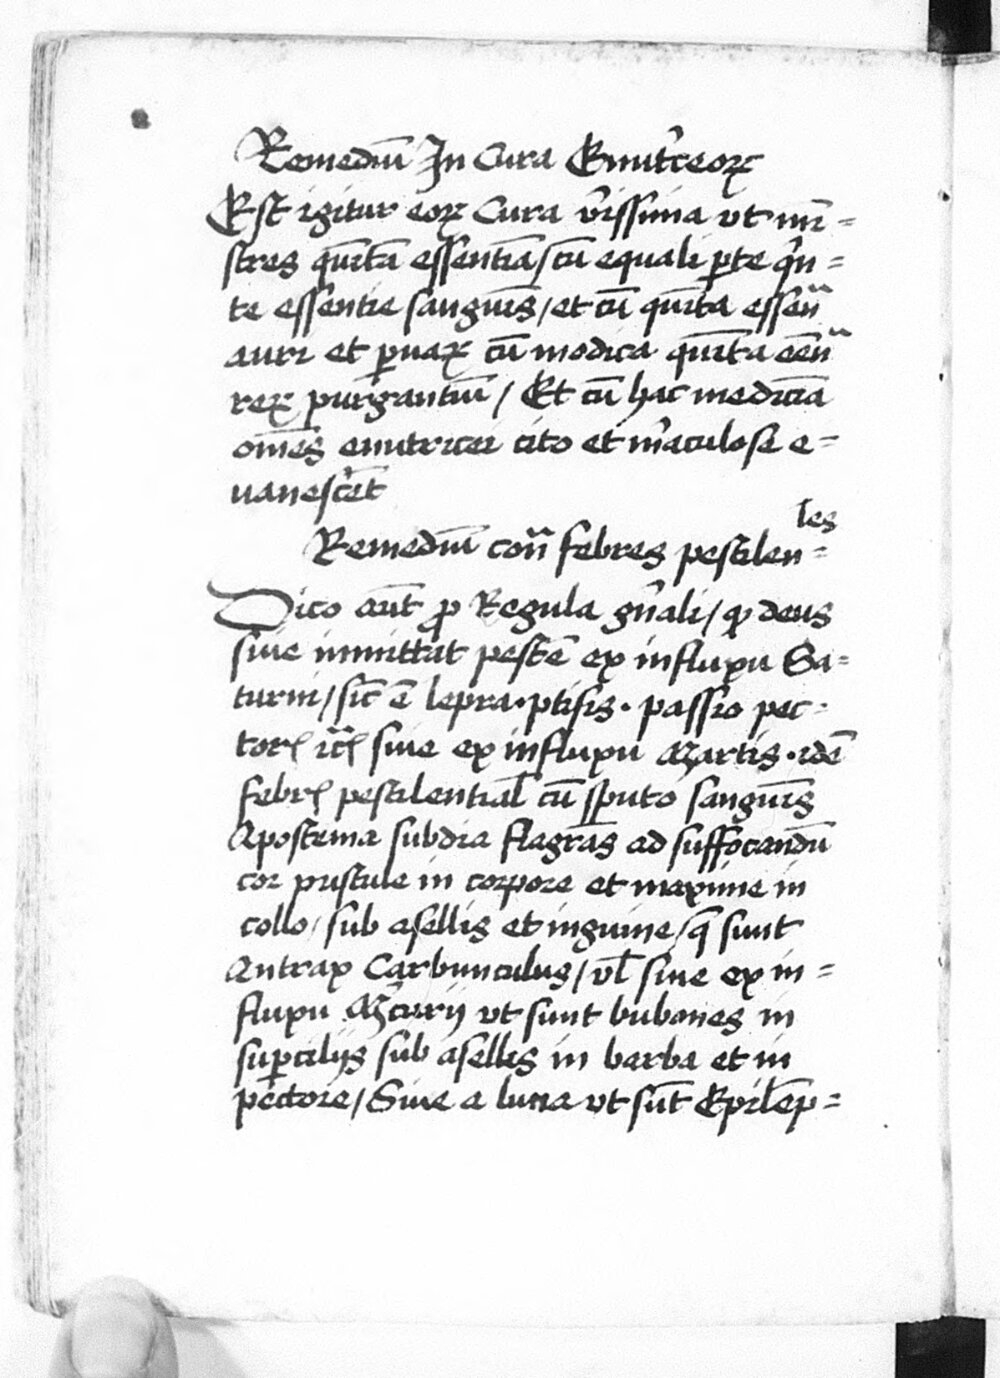 Remediū In Cura Emit̄ceoꝝ
Est igitur eoꝝ Cura v̓issima vt mī=
stres q̄intā essentiā / cū equali ꝑte q̓n=
te essentie sanguīs / et cū quīta essen̄
auri et ꝑuaꝝ cū modica quīta eēn̄
reꝝ purgantiū / Et cū hac medicīa
om̄es emutricei cito et m̓aculose e=
uanescēt
Remediū con̄ febres pestilen=
les
Dico aūt ꝓ Regula gn̓ali / ꝙ deus
siue inmittat pestē ex influxu Sa=
turni / sic̄ ē lepra · ptisis · passio pec=
torꝭ ic̄ꝭ siue ex influxu Martis · idē
febrꝭ pestilential̄ cū sputo sanguīs
Apostema subdia flagrās ad suffocandū
cor pustule in corpore et maxime in
collo / sub asellis et inguine / q̄ sunt
Antrax Carbunculus / vl̄ siue ex in=
fluxu M̓curij vt sunt bubones in
suꝑcilijs sub asellis in barba et in
pectore / Siue a luna vt sūt Epilēp=